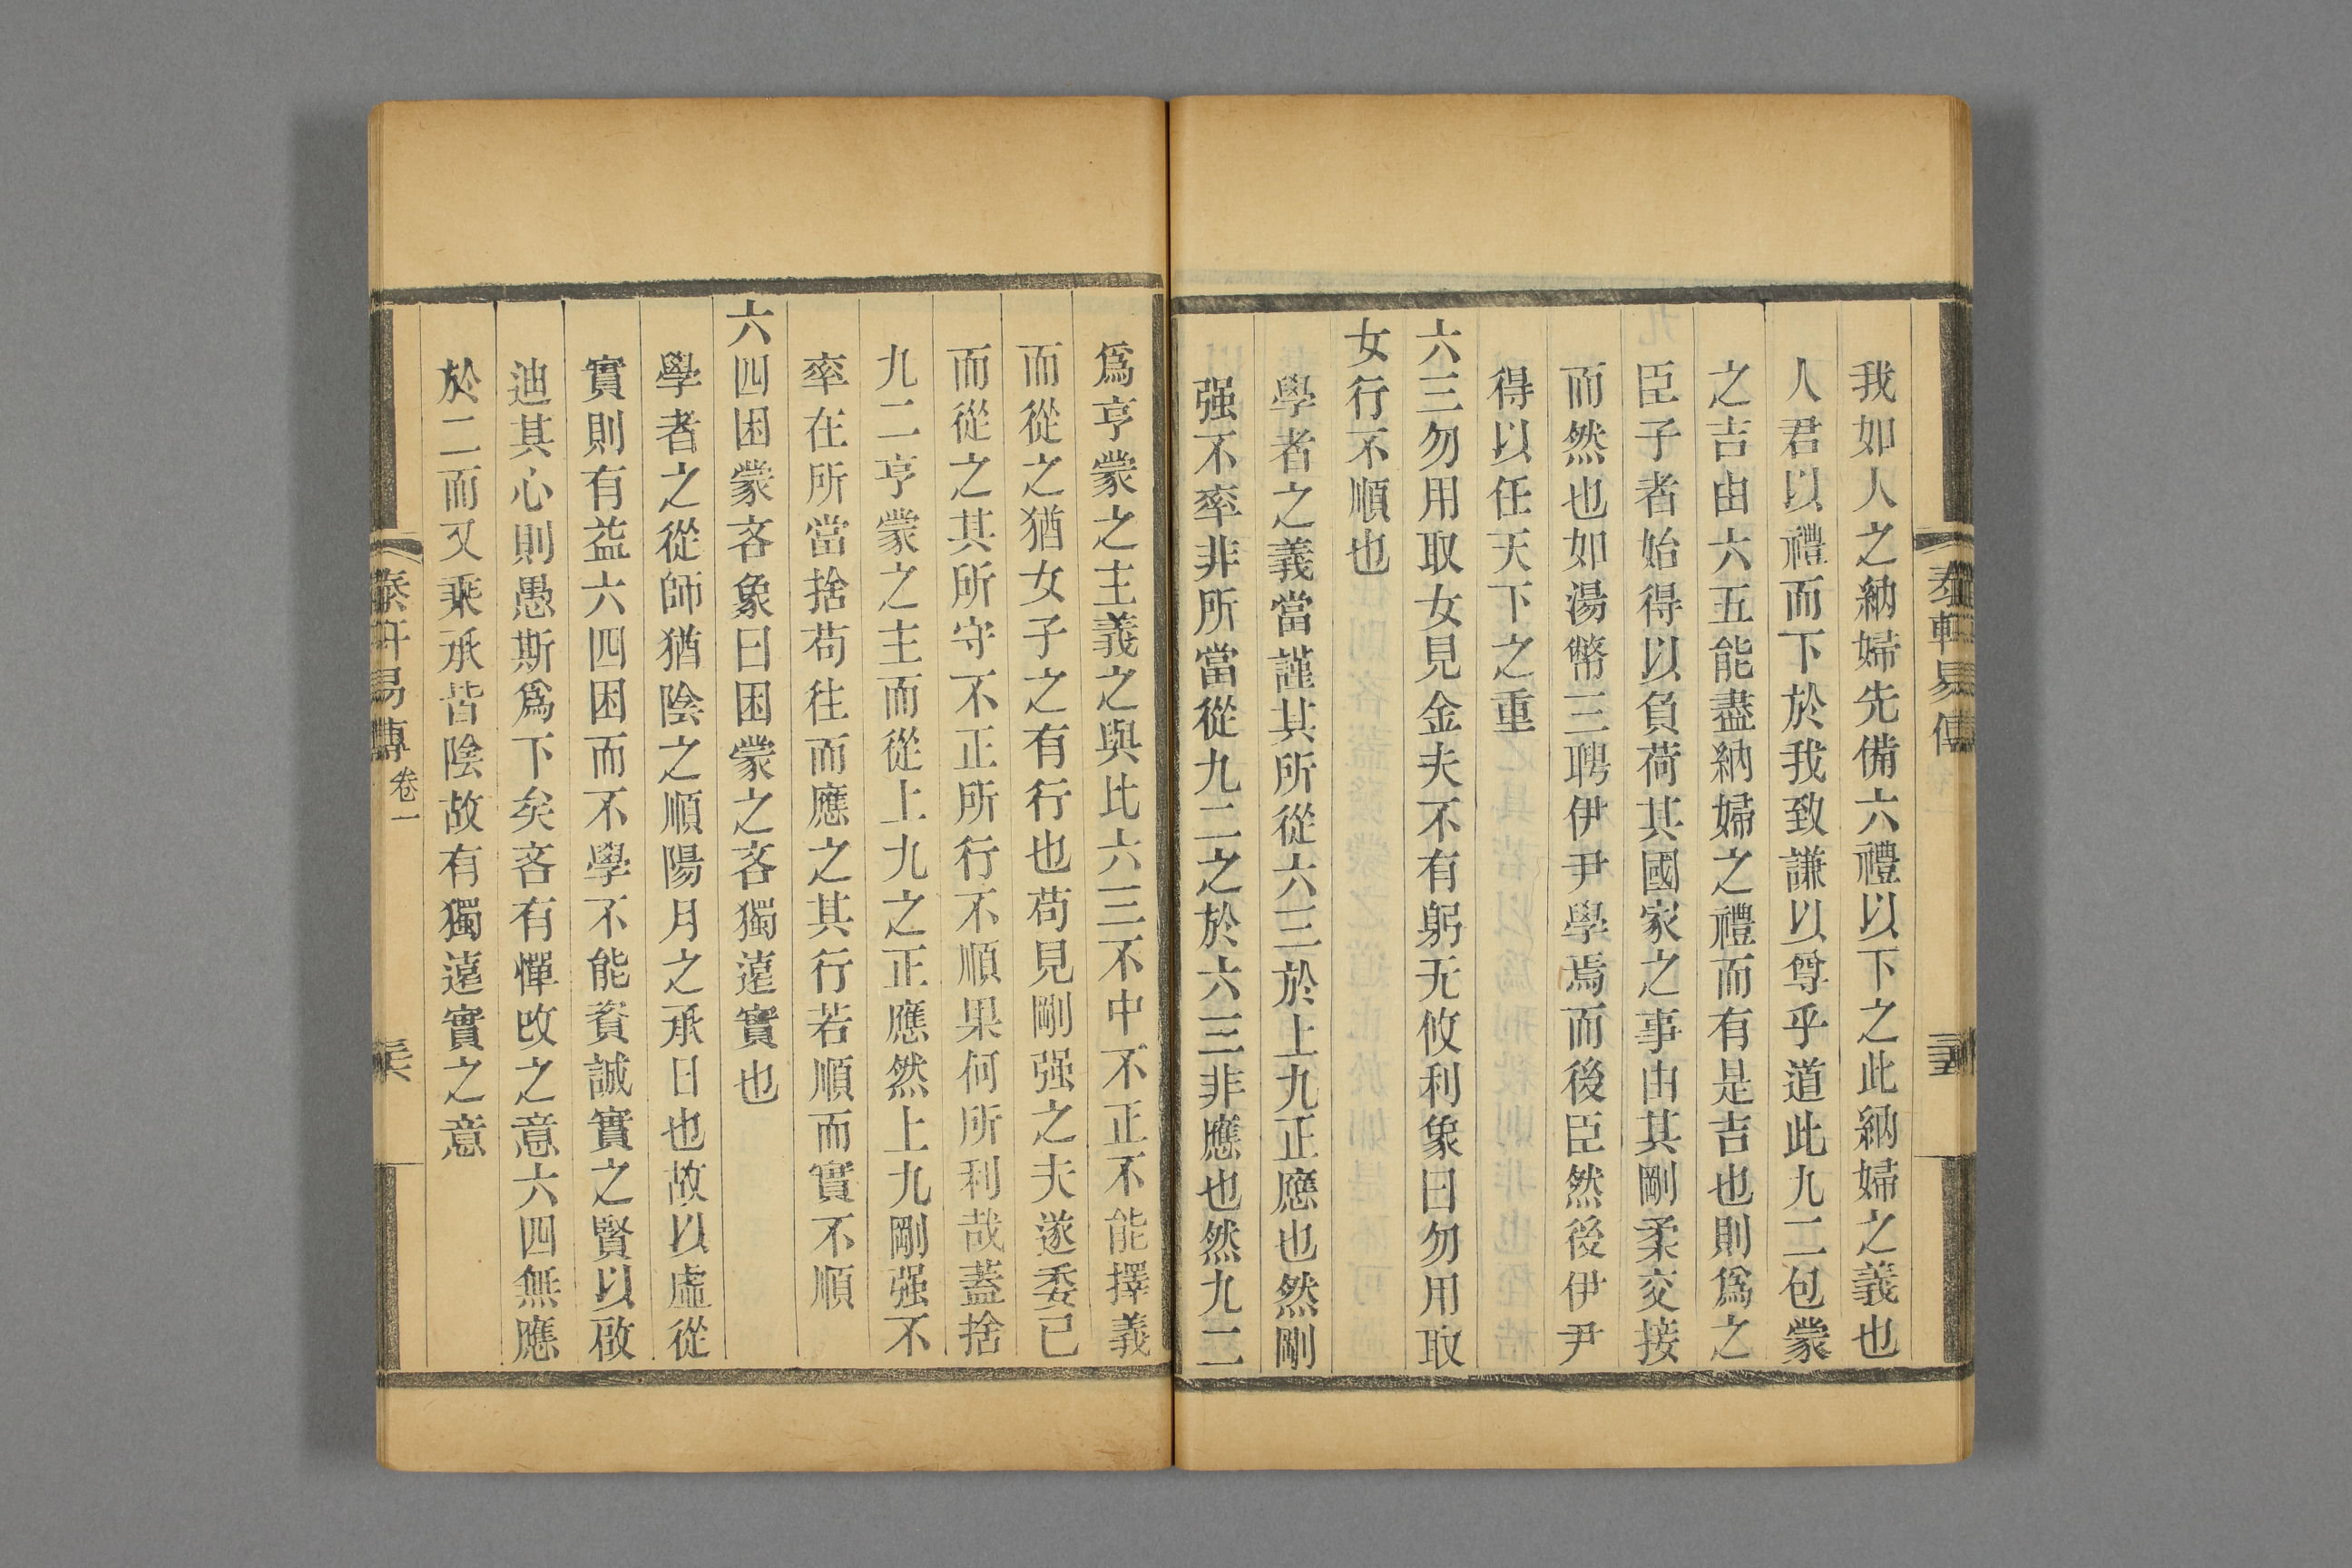 我如人之納婦先備六禮以下之此納婦之義也
人君以禮而下於我致謙以尊乎道此九二包蒙
之吉由六五能盡納婦之禮而有是吉也則爲之
臣子者始得以負荷其國家之事由其剛柔交接
而然也如湯幣三聘伊尹學焉而後臣然後伊尹
得以任天下之重
六三勿用取女見金夫不有躬无攸利象曰勿用取
女行不順也
學者之義當謹其所從六三於上九正應也然剛
强不率非所當從九二之於六三非應也然九二
爲亨蒙之主義之與比六三不中不正不能擇義
而從之猶女子之有行也苟見剛强之夫遂委己
而從之其所守不正所行不順果何所利哉蓋捨
九二亨蒙之主而從上九之正應然上九剛强不
率在所當捨苟往而應之其行若順而實不順
六四困蒙吝象曰困蒙之吝獨遠實也
學者之從師猶陰之順陽月之承日也故以虛從
實則有益六四困而不學不能資誠實之賢以啟
迪其心則愚斯爲下矣吝有憚改之意六四無應
於二而又乘承皆陰故有獨遠實之意
易傳
卷一